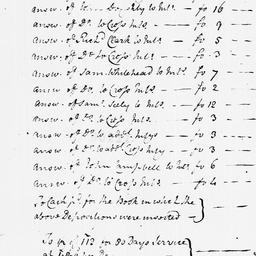 answ. of — Seely to Int.s — fo 16 —
answ. of Do. to Cross Int.s — fo 9
answ. of Rich.d Clark to Int.s — fo 5
answ. of Do. to Cross Int.s — fo 3
answ. of Sam. Whitehead to Int.s fo 7
answ. of Do. to Cross Int.s — fo 2
answ. of Sam.l Seely to Int.s — fo 12
answ. of Do. to Cross Int.s — fo 3
answ. of Do. to add.l Int.ys — fo 3
answ. of Do. to add.l Cross Int.ys — fo 3
answ. of John Campbell to Int.s fo 6
answ. of Do. to Cross Int.s — fo 4
To Cash p.d for the Book in w.ch the
above Depositions were inserted
To 80 Days Service